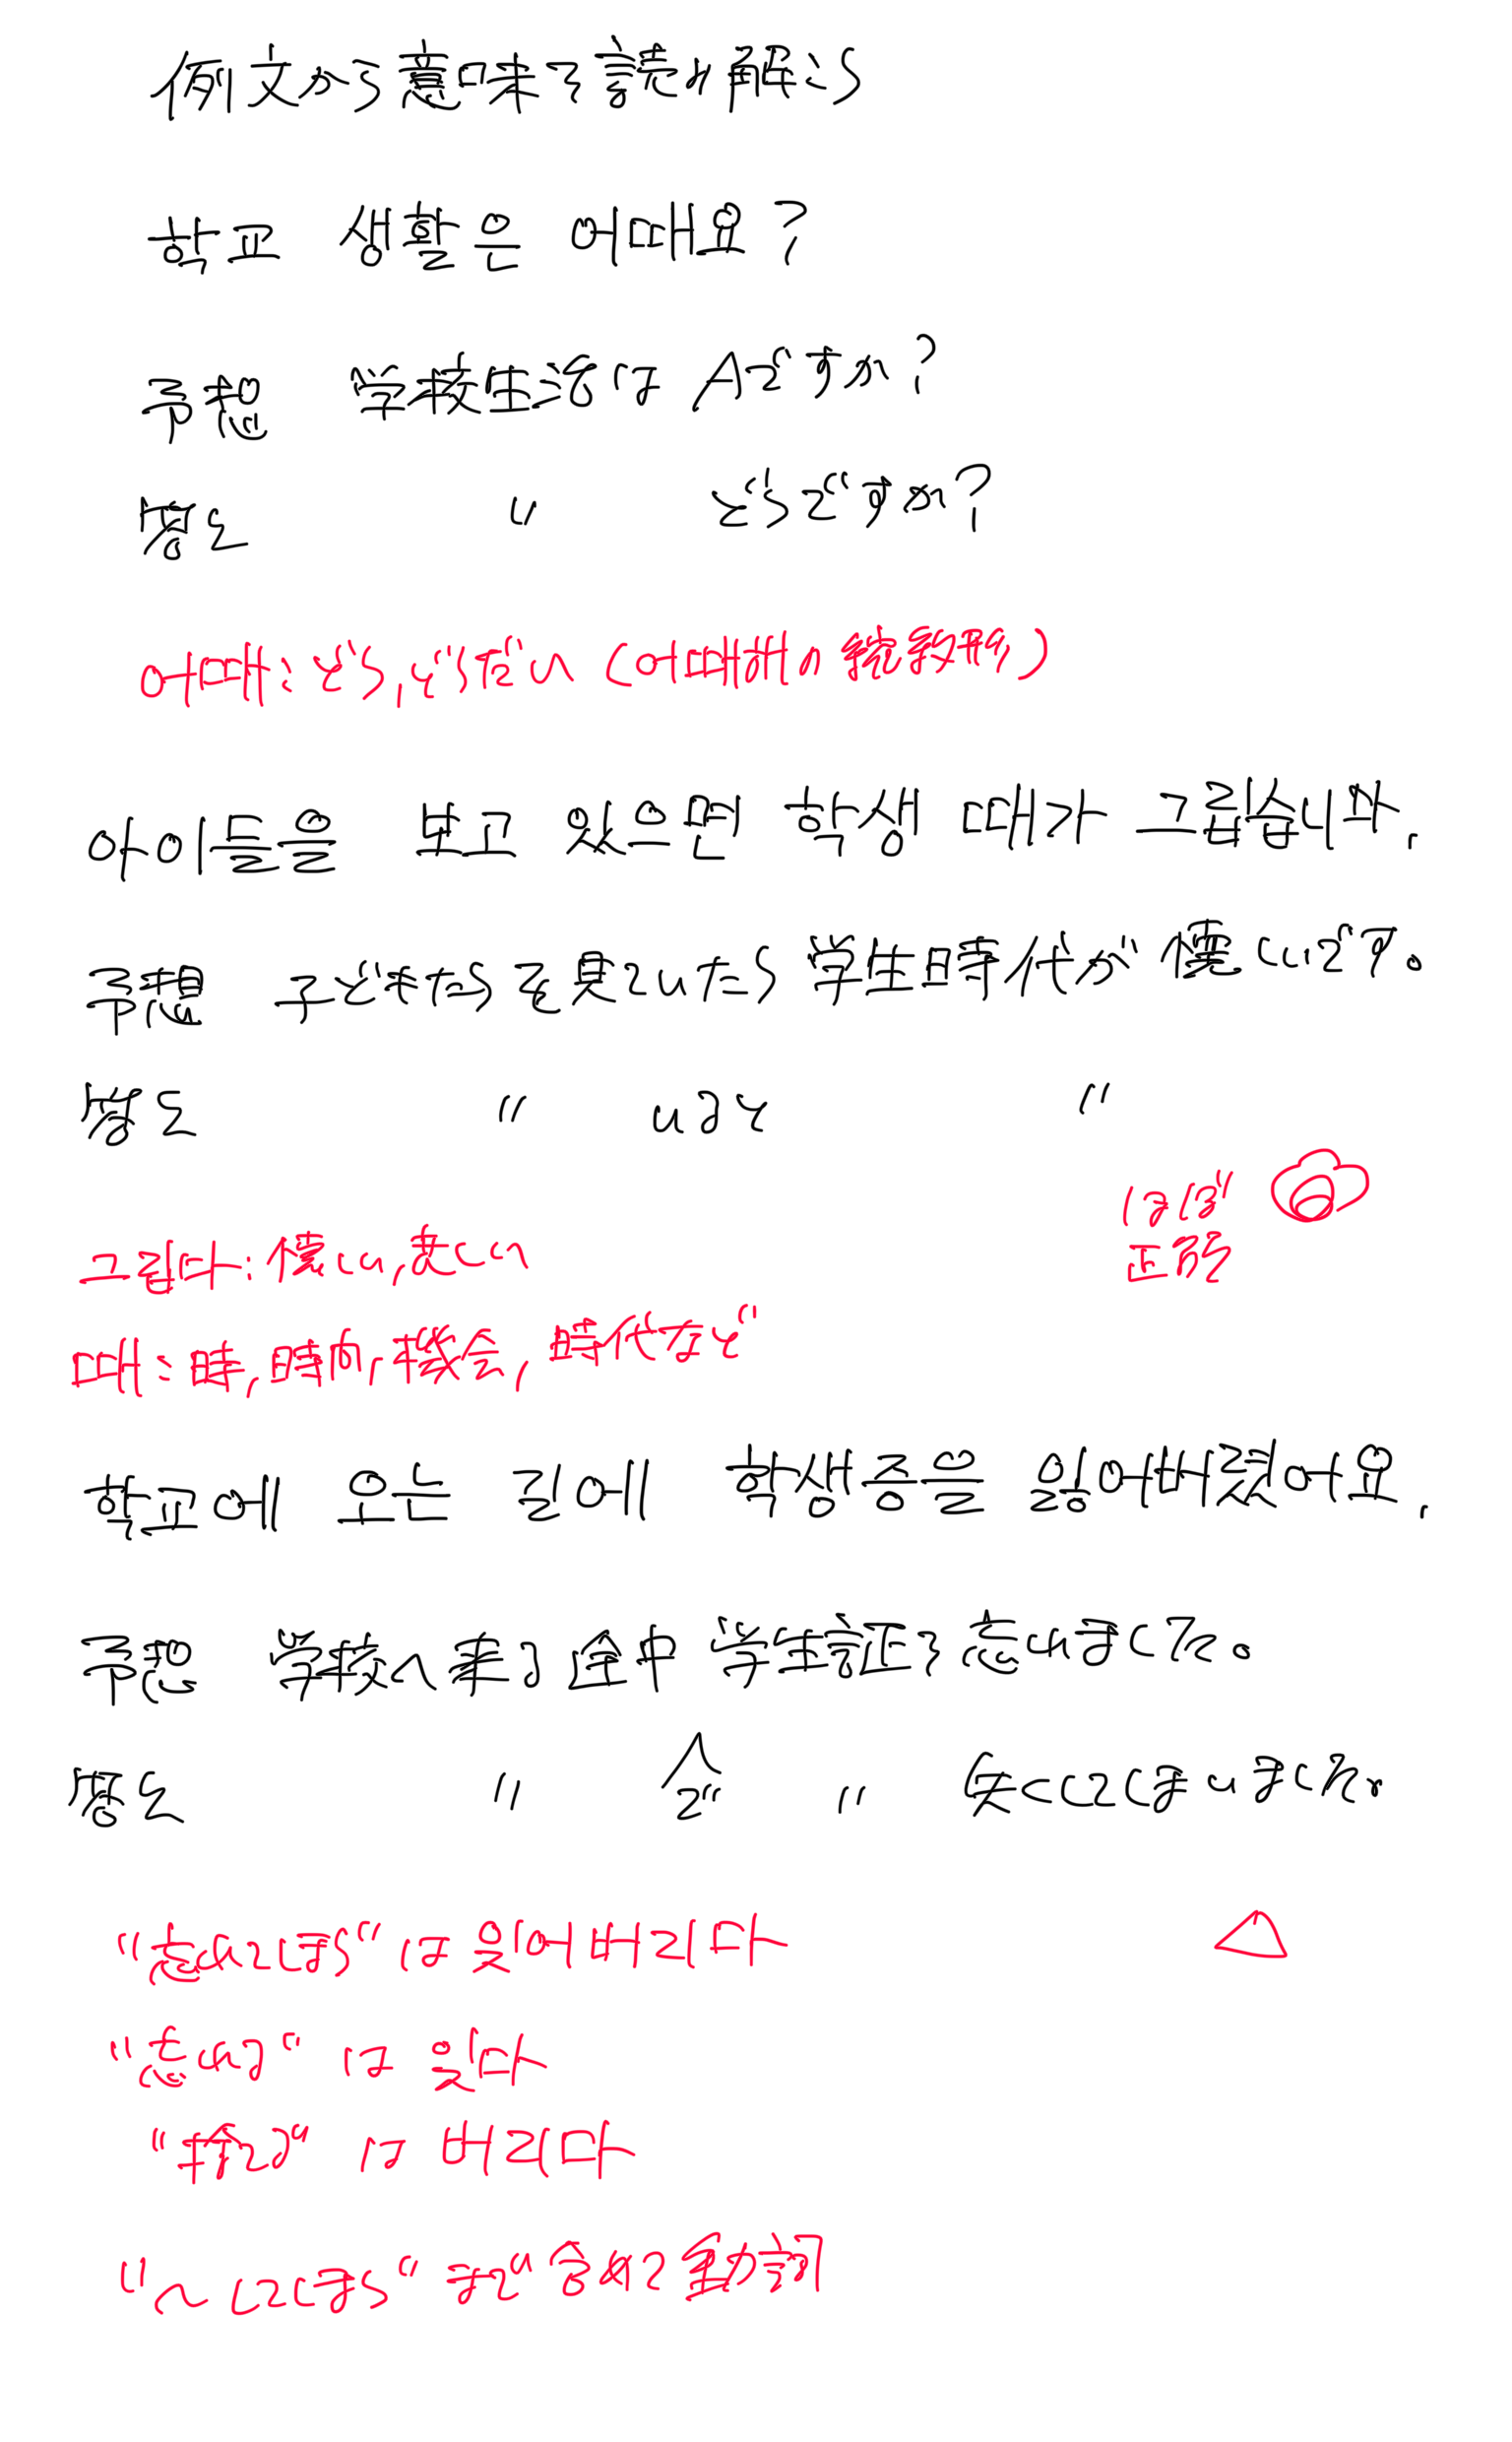 例文から意味を読み解ろ
학교 생활은 어때요?
予想 学校生活は人ですか?
答え 〃 どうですか?
어때:どう,どうだい(어떠해の縮約形)
아이들을 보고 있으면 학생 때가 그립습니다.
予想 子ども達を見ていたら学生時代が懐しいです。
答え 〃 いると 〃
ほぼ
正解
그립다:懐い,恋しい
때:時,時間,機会,時代など
학교에 오는 길에 학생증을 잃어버렸어요.
予想 学校へ来る途中 学生証を忘れました。
答え 〃 で 〃 失くしてしまいました
"忘れてしまう"は잊어버리다
"忘れる"は잊다
"捨てる"は버리다
"〜してしまう"まで含んだ動詞